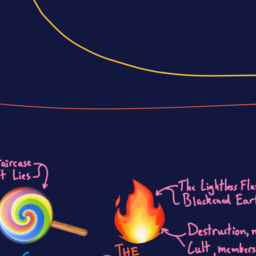 taircase
t Lies
The Lightless Fla
Blackened Eart
Destruction, n
Cult, members
THE